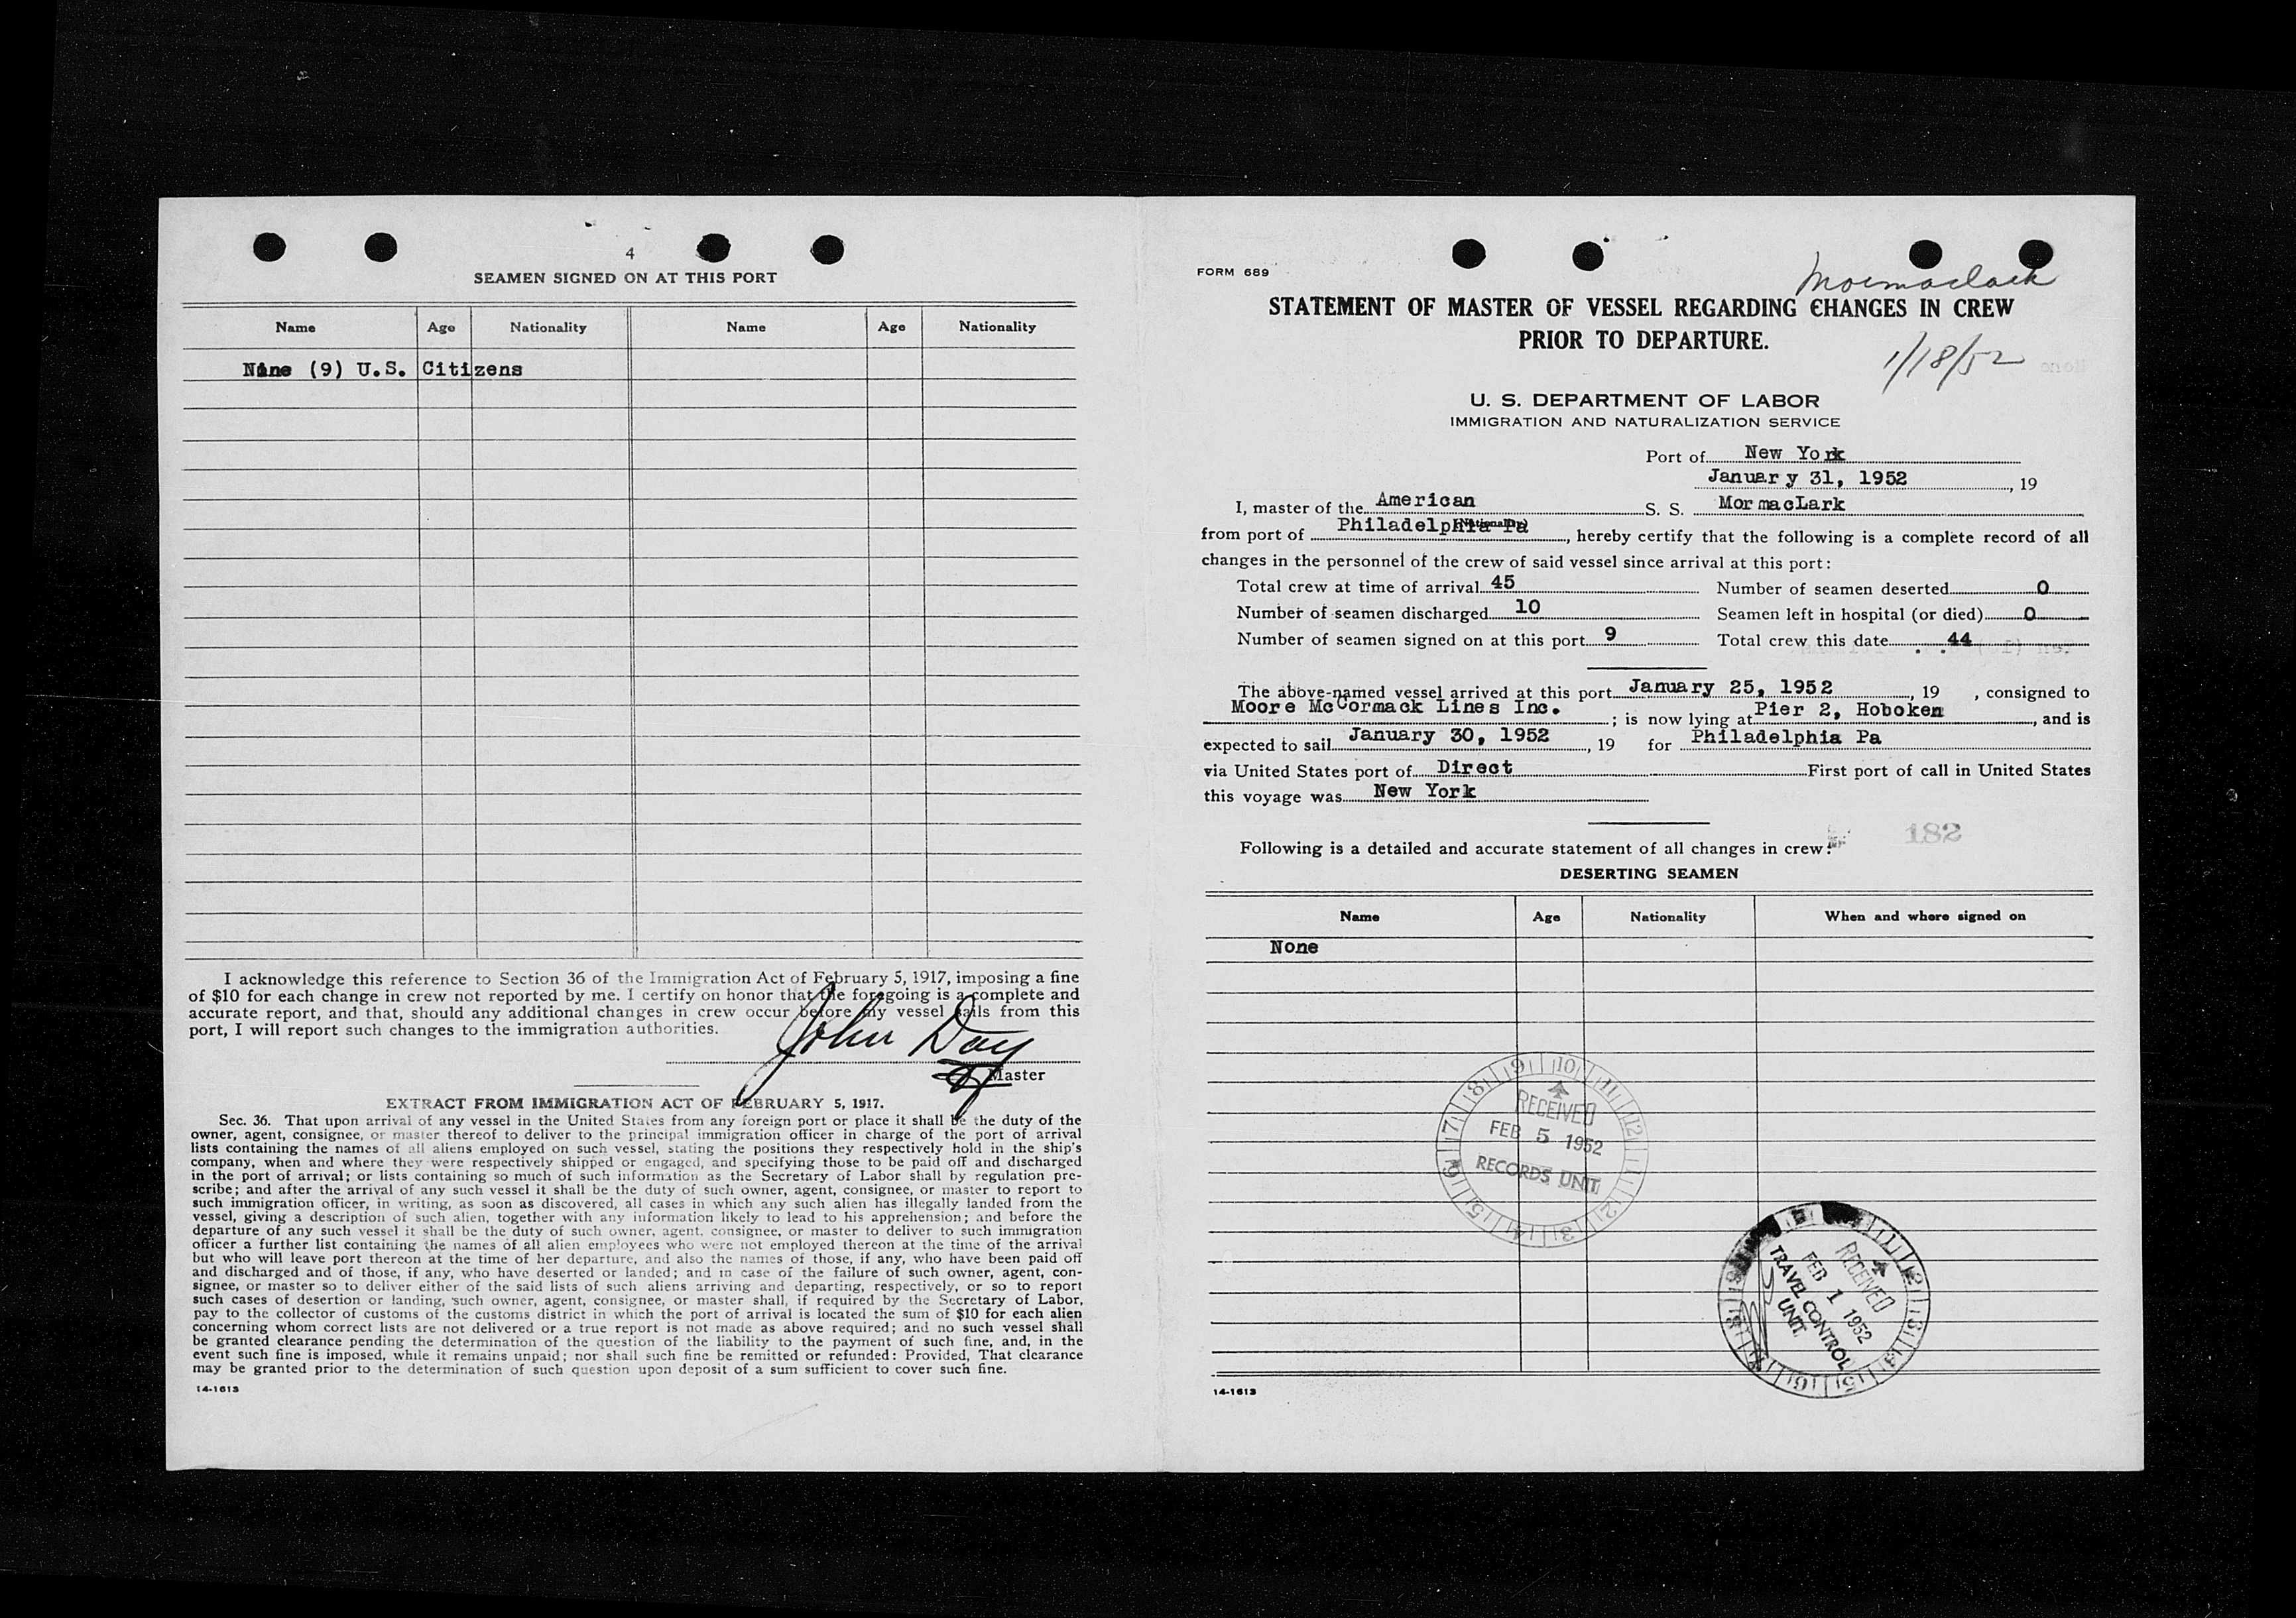 4
SEAMEN SIGNED ON AT THIS PORT
Name Age Nationality Name Age Nationality
Nine (9) U.S. Citizens
I acknowledge this reference to Section 36 of the Immigration Act of February 5, 1917, imposing a fine
of $10 for each change in crew not reported by me. I certify on honor that the foregoing is a complete and
accurate report, and that, should any additional changes in crew occur before my vessel sails from this
port, I will report such changes to the immigration authorities.
John Day
Master
EXTRACT FROM IMMIGRATION ACT OF FEBRUARY 5, 1917.
Sec. 36. That upon arrival of any vessel in the United States from any foreign port or place it shall be the duty of the
owner, agent, consignee, or master thereof to deliver to the principal immigration officer in charge of the port of arrival
lists containing the names of all aliens employed on such vessel, stating the positions they respectively hold in the ship's
company, when and where they were respectively shipped or engaged, and specifying those to be paid off and discharged
in the port of arrival; or lists containing so much of such information as the Secretary of Labor shall by regulation pre-
scribe; and after the arrival of any such vessel it shall be the duty of such owner, agent, consignee, or master to report to
such immigration officer, in writing, as soon as discovered, all cases in which any such alien has illegally landed from the
vessel, giving a description of such alien, together with any information likely to lead to his apprehension; and before the
departure of any such vessel it shall be the duty of such owner, agent, consignee, or master to deliver to such immigration
officer a further list containing the names of all alien employees who were not employed thereon at the time of the arrival
but who will leave port thereon at the time of her departure, and also the names of those, if any, who have been paid off
and discharged and of those, if any, who have deserted or landed; and in case of the failure of such owner, agent, con-
signee, or master so to deliver either of the said lists of such aliens arriving and departing, respectively, or so to report
such cases of desertion or landing, such owner, agent, consignee, or master shall, if required by the Secretary of Labor,
pay to the collector of customs of the customs district in which the port of arrival is located the sum of $10 for each alien
concerning whom correct lists are not delivered or a true report is not made as above required; and no such vessel shall
be granted clearance pending the determination of the question of the liability to the payment of such fine, and, in the
event such fine is imposed, while it remains unpaid; nor shall such fine be remitted or refunded: Provided, That clearance
may be granted prior to the determination of such question upon deposit of a sum sufficient to cover such fine.
14-1613
FORM 689
Mormaclark
STATEMENT OF MASTER OF VESSEL REGARDING CHANGES IN CREW
PRIOR TO DEPARTURE.
1/18/52
U. S. DEPARTMENT OF LABOR
IMMIGRATION AND NATURALIZATION SERVICE
Port of New York
January 31, 1952, 19
I, master of the American S. S. MormacLark
(Nationality)
from port of Philadelphia Pa, hereby certify that the following is a complete record of all
changes in the personnel of the crew of said vessel since arrival at this port:
Total crew at time of arrival 45 Number of seamen deserted 0
Number of seamen discharged 10 Seamen left in hospital (or died) 0
Number of seamen signed on at this port 9 Total crew this date 44
The above-named vessel arrived at this port January 25, 1952, 19 , consigned to
Moore McCormack Lines Inc.; is now lying at Pier 2, Hoboken, and is
expected to sail January 30, 1952, 19 for Philadelphia Pa
via United States port of Direct First port of call in United States
this voyage was New York
182
Following is a detailed and accurate statement of all changes in crew:
DESERTING SEAMEN
Name Age Nationality When and where signed on
None
RECEIVED
FEB 5 1952
RECORDS UNIT
RECEIVED
FEB 1 1952
TRAVEL CONTROL
UNIT
14-1613